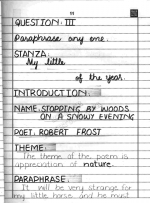 11
QUESTION: III
Paraphrase any one.
STANZA:
My little
of the year.
INTRODUCTION:
NAME: STOPPING BY WOODS
ON A SNOWY EVENING
POET: ROBERT FROST
THEME:
The theme of the poem is
appreciation of nature.
PARAPHRASE:
It will be very strange for
my little horse and he must